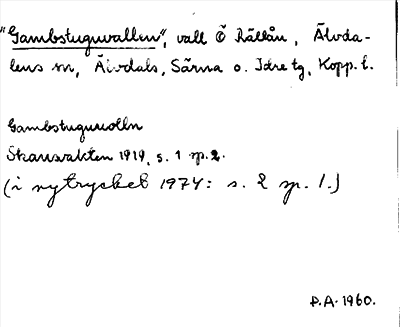 "Gambstuguvallen", vall Ö Rällån, Älvda-
lens sn, Älvdals, Särna o. Idre tg, Kopp. l.
Gambstuguvolln
Skansvakten 1919, s. 1 sp. 2.
(i nytrycket 1974: s. 2 sp. 1.)
P.A. 1960.